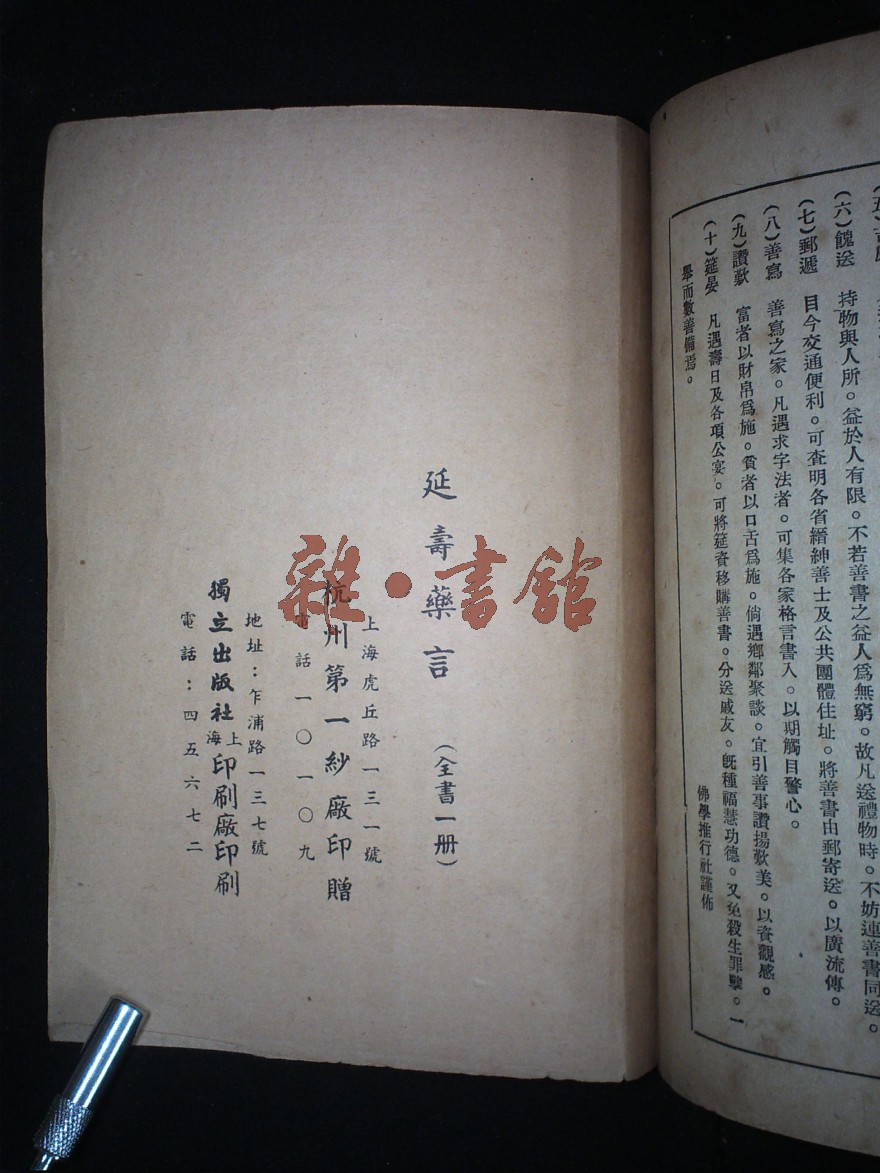 (六)餽送 持物與人所。益於人有限。不若善書之益人爲無窮。故凡送禮物時。不妨連善書同送。
(七)郵遞 目今交通便利。可查明各省縉紳善士及公共團體住址。將善書由郵寄送。以廣流傳。
(八)善寫 善寫之家。凡遇求字法者。可集各家格言書入。以期觸目警心。
(九)讚歎 富者以財帛爲施。貧者以口舌爲施。倘遇鄉鄰聚談。宜引善事讚揚歎美。以資觀感。
(十)筵宴 凡遇壽日及各項公宴。可將筵資移購善書。分送戚友。旣種福慧功德。又免殺生罪孽。一
舉而數善備焉。
佛學推行社謹佈
延壽藥言 (全書一册)
上海虎丘路一三一號
杭州第一紗廠印贈
電話一〇一〇九
地址:乍浦路一三七號
獨立出版社上海印刷廠印刷
電話:四五六七二
雜·書館